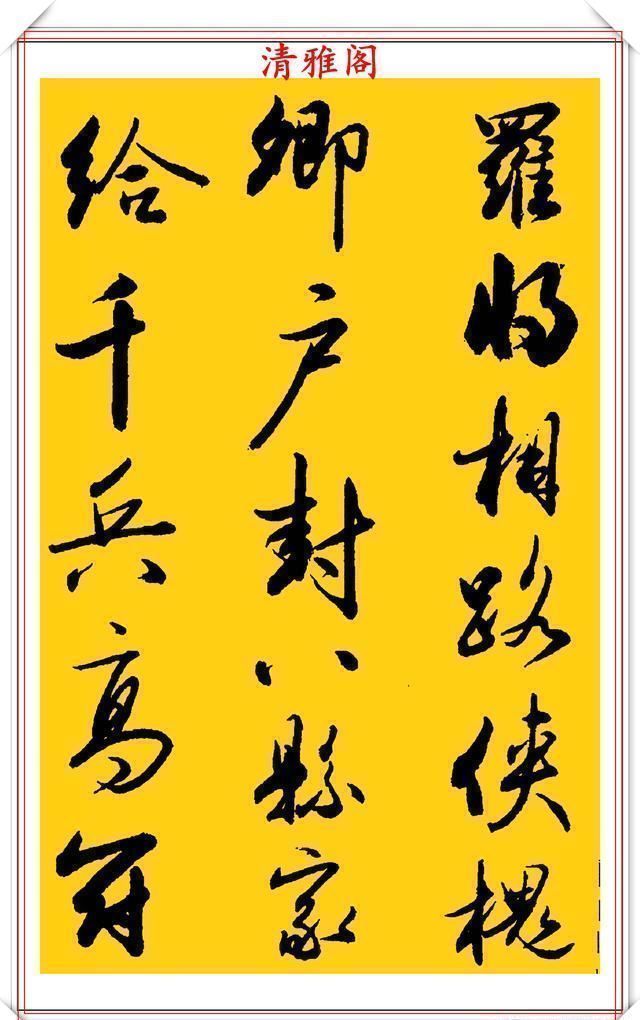 清雅阁
羅将相路俠槐
卿户封八縣家
給千兵高冠